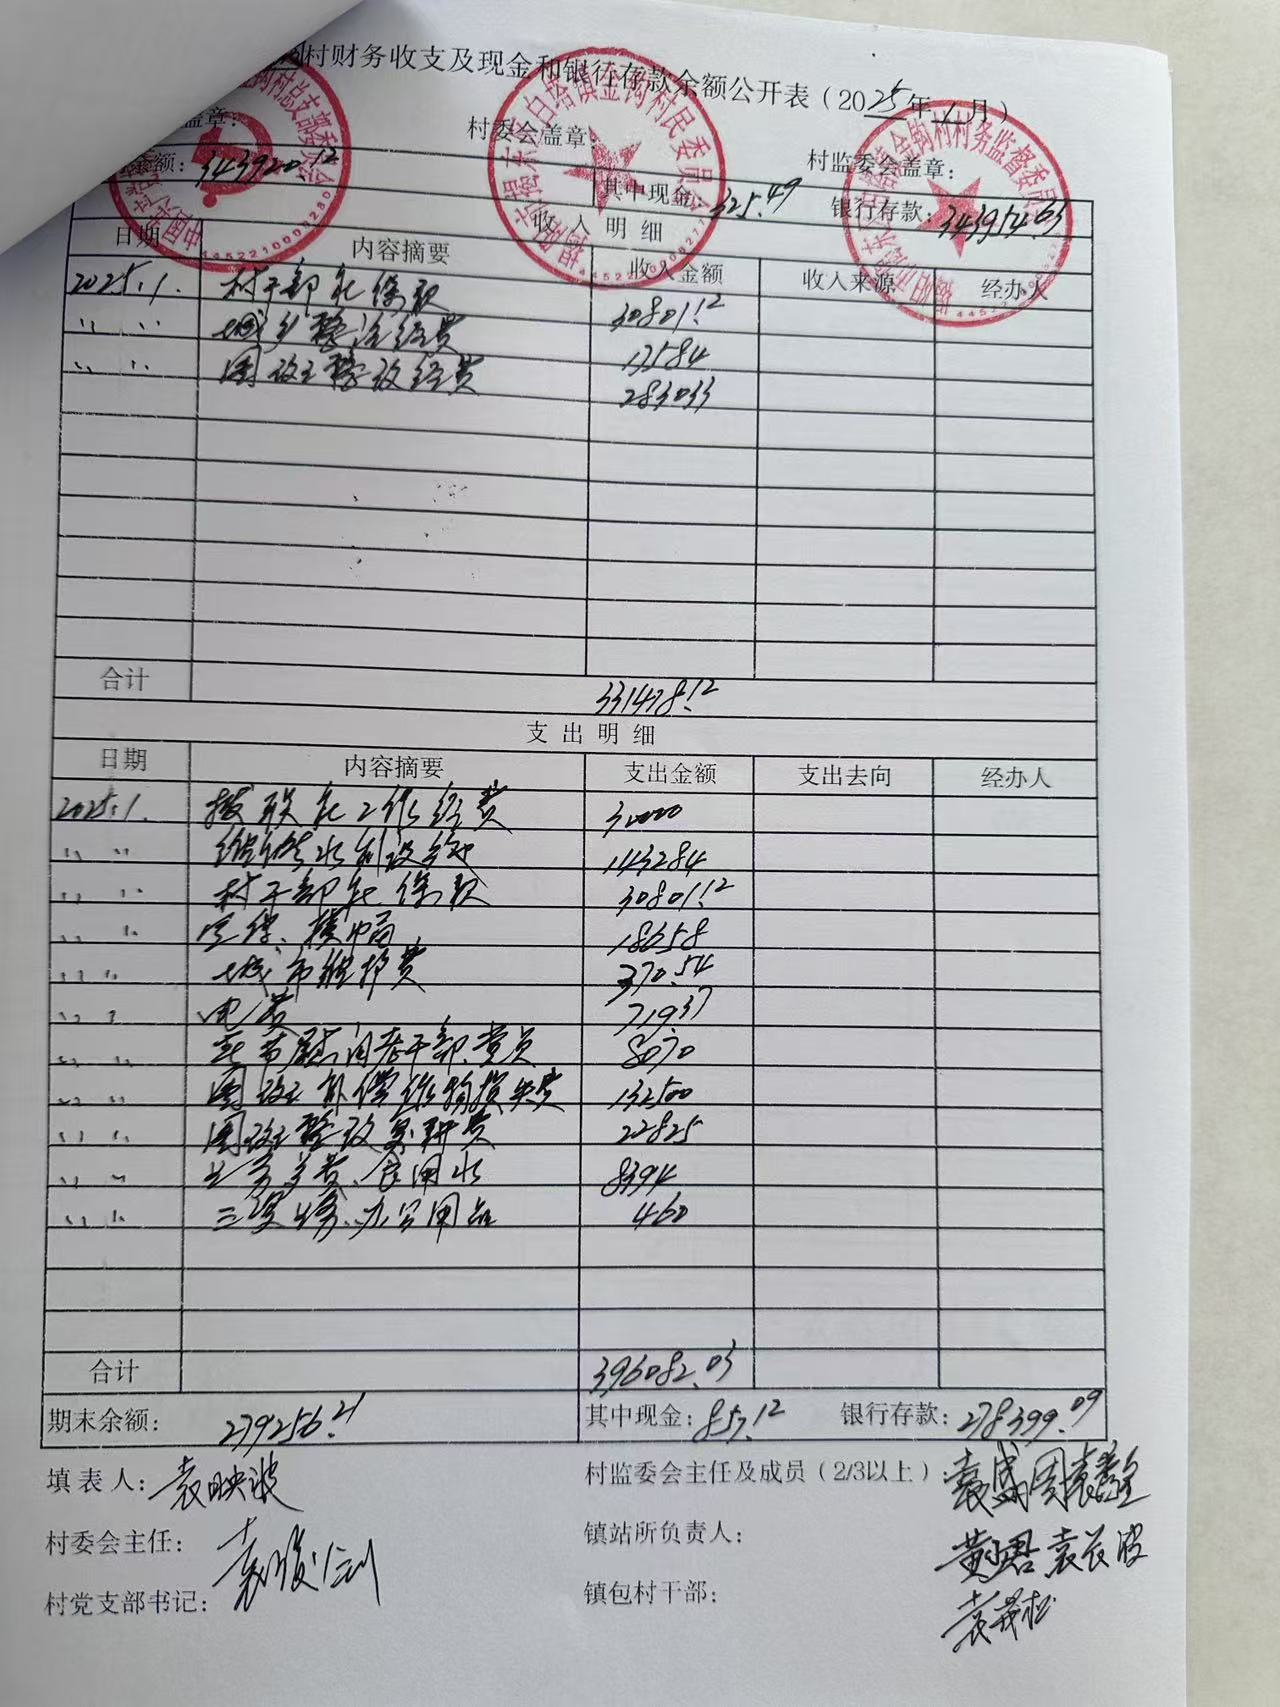 村财务收支及现金和银行存款余额公开表(2025年1月)
盖章:
村委会盖章:
村监委会盖章:
余额: 343920.12 其中现金: 325.49 银行存款: 343954.63
收入明细
日期 内容摘要 收入金额 收入来源 经办人
2025.1. 村干部社保款 30801.12
〃 〃 城乡整治经费 17584
〃 〃 图斑整改经费 283033
合计 331418.12
支出明细
日期 内容摘要 支出金额 支出去向 经办人
2025.1. 拨联社工作经费 30000
〃 〃 维修水利设施 143284
〃 〃 村干部社保款 30801.12
〃 〃 宣传、横幅 18658
〃 〃 城市维护费 370.54
〃 〃 电费 719.37
〃 〃 春节慰问老干部、党员 8070
〃 〃 图斑补偿作物损失费 132500
〃 〃 图斑整改复耕费 22825
〃 〃 食用水 8394
〃 〃 办公用品 460
合计 396082.03
期末余额: 279256.21 其中现金: 857.12 银行存款: 278399.09
填表人: 袁映波 村监委会主任及成员(2/3以上):
村委会主任: 镇站所负责人:
村党支部书记: 镇包村干部: